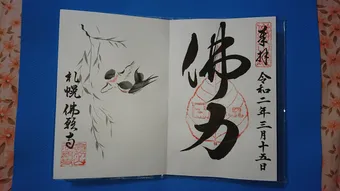 奉拝
令和二年三月十五日
佛力
札幌 佛願寺